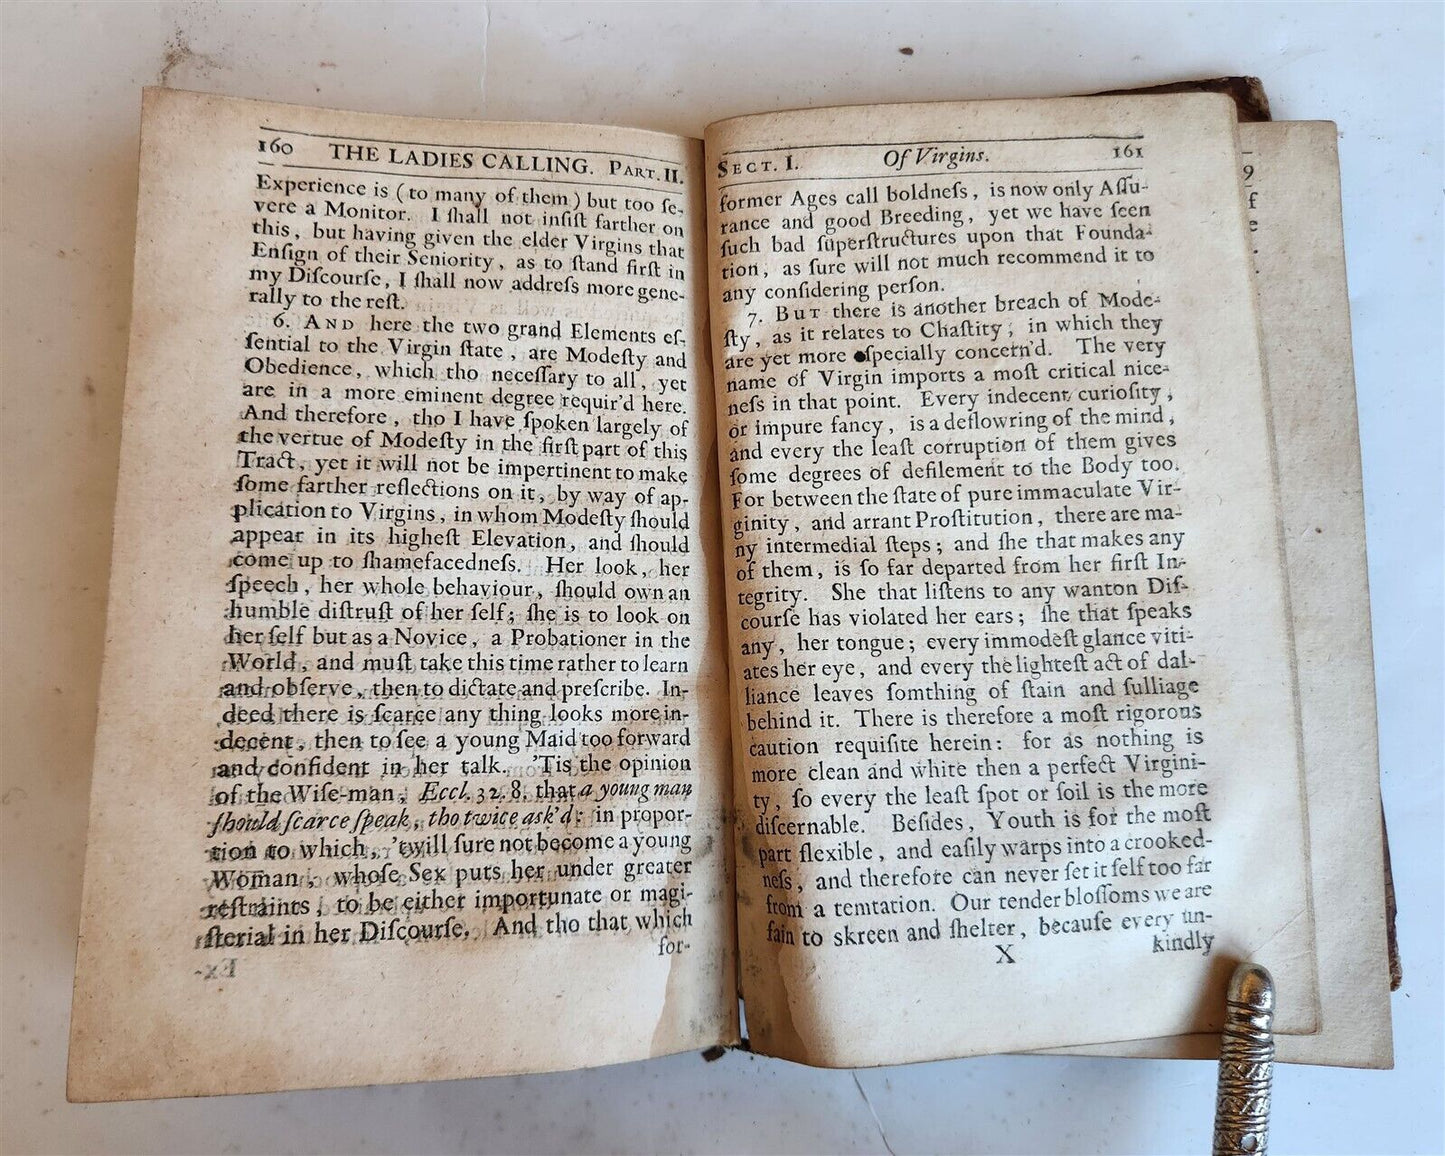 160 THE LADIES CALLING. PART. II.
Experience is (to many of them) but too ſe-
vere a Monitor. I ſhall not inſiſt farther on
this, but having given the elder Virgins that
Enſign of their Seniority, as to ſtand firſt in
my Diſcourſe, I ſhall now addreſs more gene-
rally to the reſt.
6. AND here the two grand Elements eſ-
ſential to the Virgin ſtate, are Modeſty and
Obedience, which tho neceſſary to all, yet
are in a more eminent degree requir'd here.
And therefore, tho I have ſpoken largely of
the vertue of Modeſty in the firſt part of this
Tract, yet it will not be impertinent to make
ſome farther reflections on it, by way of ap-
plication to Virgins, in whom Modeſty ſhould
appear in its higheſt Elevation, and ſhould
come up to ſhamefacedneſs. Her look, her
ſpeech, her whole behaviour, ſhould own an
humble diſtruſt of her ſelf; ſhe is to look on
her ſelf but as a Novice, a Probationer in the
World, and muſt take this time rather to learn
and obſerve, then to dictate and preſcribe. In-
deed there is ſcarce any thing looks more in-
decent, then to ſee a young Maid too forward
and confident in her talk. 'Tis the opinion
of the Wiſe-man, Eccl. 32. 8. that a young man
ſhould ſcarce ſpeak, tho twice ask'd: in propor-
tion to which, 'twill ſure not become a young
Woman, whoſe Sex puts her under greater
reſtraints, to be either importunate or magi-
ſterial in her Diſcourſe. And tho that which
for-
SECT. I. Of Virgins. 161
former Ages call boldneſs, is now only Aſſu-
rance and good Breeding, yet we have ſeen
ſuch bad ſuperſtructures upon that Founda-
tion, as ſure will not much recommend it to
any conſidering perſon.
7. BUT there is another breach of Mode-
ſty, as it relates to Chaſtity, in which they
are yet more eſpecially concern'd. The very
name of Virgin imports a moſt critical nice-
neſs in that point. Every indecent curioſity,
or impure fancy, is a deflowring of the mind,
and every the leaſt corruption of them gives
ſome degrees of defilement to the Body too.
For between the ſtate of pure immaculate Vir-
ginity, and arrant Proſtitution, there are ma-
ny intermedial ſteps; and ſhe that makes any
of them, is ſo far departed from her firſt In-
tegrity. She that liſtens to any wanton Diſ-
courſe has violated her ears; ſhe that ſpeaks
any, her tongue; every immodeſt glance viti-
ates her eye, and every the lighteſt act of dal-
liance leaves ſomthing of ſtain and ſulliage
behind it. There is therefore a moſt rigorous
caution requiſite herein: for as nothing is
more clean and white then a perfect Virgini-
ty, ſo every the leaſt ſpot or ſoil is the more
diſcernable. Beſides, Youth is for the moſt
part flexible, and eaſily warps into a crooked-
neſs, and therefore can never ſet it ſelf too far
from a temtation. Our tender bloſſoms we are
fain to skreen and ſhelter, becauſe every un-
X kindly
9
f
e